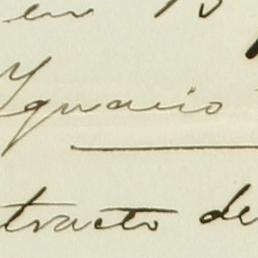 en 13
Ygnacio
tracto de